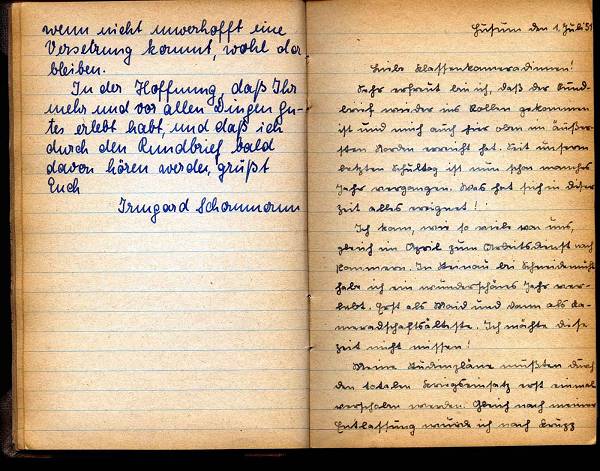 wenn nicht unverhofft eine
Versetzung kommt, wohl da
bleiben.
In der Hoffnung, daß Ihr
mehr und vor allen Dingen gu-
tes erlebt habt, und daß ich
durch den Rundbrief bald
davon hören werde, grüßt
Euch
Irmgard Schanmann
Husum den 1. Juli 51
Liebe Klassenkameradinnen!
Sehr erfreut bin ich, daß der Rund-
brief wieder ins Rollen gekommen
ist und mich auch hier oben im äußer-
sten Norden erreicht hat. Seit unserm
letzten Schultag ist nun schon manches
Jahr vergangen. Was hat sich in dieser
Zeit alles ereignet!
Ich kam, wie so viele von uns,
gleich im April zum Arbeitsdienst nach
Pommern. In bei Schneidemühl
habe ich ein wunderschönes Jahr ver-
lebt. Erst als Maid und dann als Ka-
meradschaftsälteste. Ich möchte diese
Zeit nicht missen!
Meine Studienpläne mußten durch
den totalen Kriegseinsatz erst einmal
verschoben werden. Gleich nach meiner
Entlassung wurde ich nach Krupp